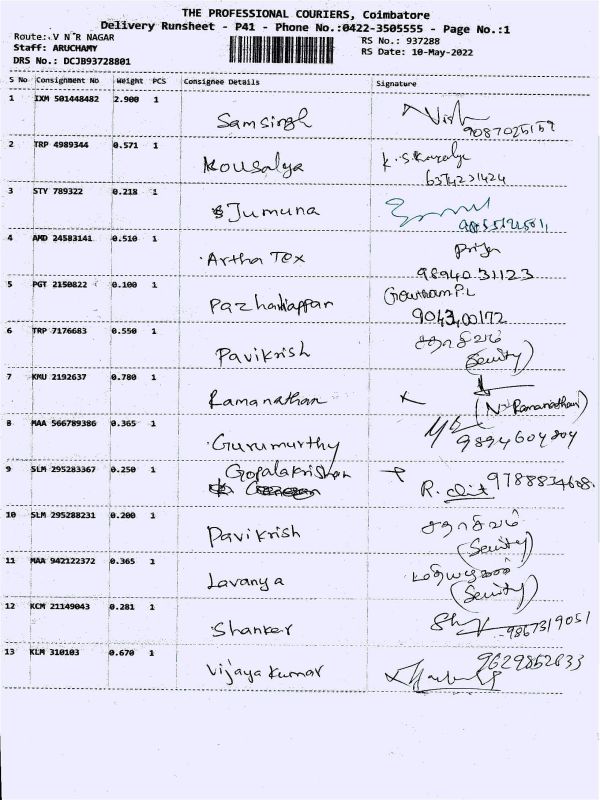 THE PROFESSIONAL COURIERS, Coimbatore
Delivery Runsheet - P41 - Phone No.:0422-3505555 - Page No.:1
Route: V N R NAGAR
RS No.: 937288
Staff: ARUCHAMY
RS Date: 10-May-2022
DRS No.: DCJB93728801
S No Consignment No Weight PCS Consignee Details Signature
1 IXM 501448482 2.900 1
Samsingh
2 TRP 4989344 0.571 1
Kousalya
6374231424
3 STY 789322 0.218 1
Jumuna
4 AMD 24583141 0.510 1
Artha Tex Priya
98940 31123
5 PGT 2150822 0.100 1
Gowtham P.L
9043400172
6 TRP 7176683 0.550 1
சதாசிவம்
Pavikrish
(Seurity)
7 KMU 2192637 0.780 1
Ramanathan (N. Ramanathan)
8 MAA 566789386 0.365 1
Gurumurthy 9894604804
9 SLM 295283367 0.250 1
Gopalakrishan
R.
10 SLM 295288231 0.200 1
Pavikrish சதாசிவம்
(Seurity)
11 MAA 942122372 0.365 1
Lavanya
(Seurity)
12 KCM 21149043 0.281 1
Shanker 9867319051
13 KLM 310103 0.670 1
9629852633
Vijayakumar